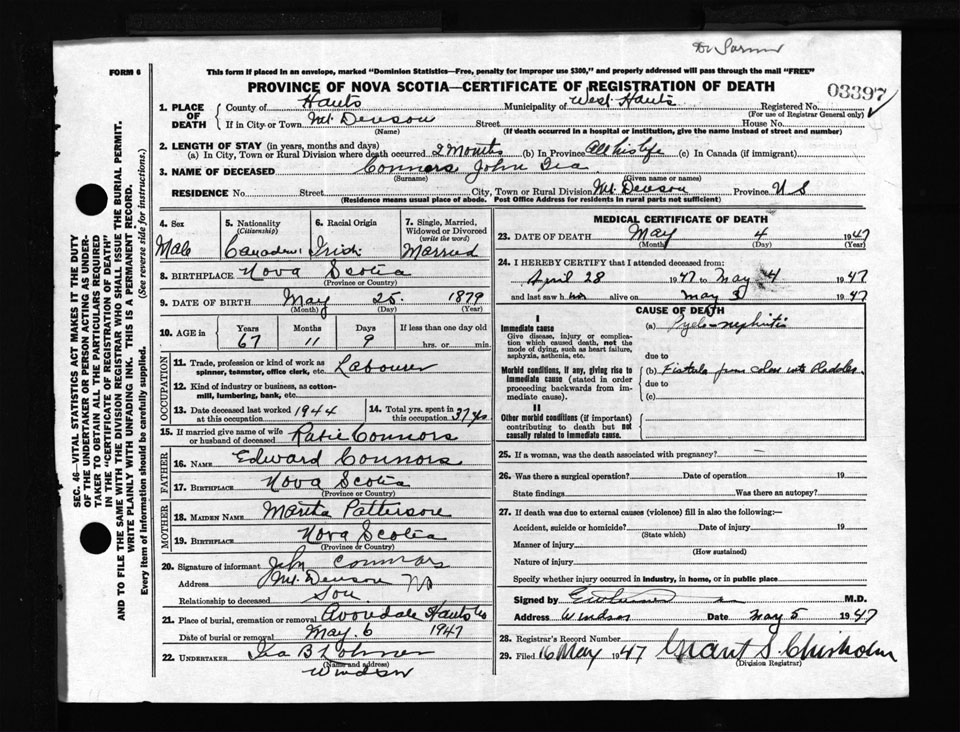 Dr
FORM 6
This form if placed in an envelope, marked "Dominion Statistics—Free, penalty for improper use $300," and properly addressed will pass through the mail "FREE"
PROVINCE OF NOVA SCOTIA—CERTIFICATE OF REGISTRATION OF DEATH
03397
1. PLACE OF DEATH County of Hants Municipality of West Hants Registered No.
(For use of Registrar General only)
If in City or Town Mt. Denson Street House No.
(Name) (If death occurred in a hospital or institution, give the name instead of street and number)
2. LENGTH OF STAY (in years, months and days)
(a) In City, Town or Rural Division where death occurred 2 Months (b) In Province All his life (c) In Canada (if immigrant)
3. NAME OF DECEASED Connors John
(Surname) (Given name or names)
RESIDENCE No. Street City, Town or Rural Division Mt. Denson Province N S
(Residence means usual place of abode. Post Office Address for residents in rural parts not sufficient)
4. Sex 5. Nationality (Citizenship) 6. Racial Origin 7. Single, Married, Widowed or Divorced (write the word)
Male Irish Married
8. BIRTHPLACE Nova Scotia
(Province or Country)
9. DATE OF BIRTH May 25 1879
(Month) (Day) (Year)
10. AGE in Years Months Days If less than one day old
67 11 9 hrs. or min.
OCCUPATION
11. Trade, profession or kind of work as spinner, teamster, office clerk, etc. Labourer
12. Kind of industry or business, as cotton-mill, lumbering, bank, etc.
13. Date deceased last worked at this occupation 1944 14. Total yrs. spent in this occupation 37 yrs
15. If married give name of wife or husband of deceased Katie Connors
FATHER
16. NAME Edward Connors
17. BIRTHPLACE Nova Scotia
(Province or Country)
MOTHER
18. MAIDEN NAME Patterson
19. BIRTHPLACE Nova Scotia
(Province or Country)
20. Signature of informant John Connors
Address Mt. Denson NS
Relationship to deceased Son
21. Place of burial, cremation or removal Avondale Hants Co
Date of burial or removal May 6 1947
22. UNDERTAKER Ira B
(Name and address)
Windsor
MEDICAL CERTIFICATE OF DEATH
23. DATE OF DEATH May 4 1947
(Month) (Day) (Year)
24. I HEREBY CERTIFY that I attended deceased from:
April 28 1947 to May 4 1947
and last saw him alive on May 3 1947
CAUSE OF DEATH
I
Immediate cause
Give disease, injury or complication which caused death, not the mode of dying, such as heart failure, asphyxia, asthenia, etc.
(a) Pyelo-nephritis
due to
Morbid conditions, if any, giving rise to immediate cause (stated in order proceeding backwards from immediate cause).
(b) Fistula from colon into Bladder
due to
(c)
II
Other morbid conditions (if important) contributing to death but not causally related to immediate cause.
25. If a woman, was the death associated with pregnancy? –
26. Was there a surgical operation? Date of operation 19
State findings Was there an autopsy?
27. If death was due to external causes (violence) fill in also the following:—
Accident, suicide or homicide? Date of injury 19
(State which)
Manner of injury
(How sustained)
Nature of injury
Specify whether injury occurred in industry, in home, or in public place
Signed by M.D.
Address Windsor Date May 5 1947
28. Registrar's Record Number
29. Filed 16 May 1947 Grant S. Chisholm
(Division Registrar)
SEC. 46—VITAL STATISTICS ACT MAKES IT THE DUTY
OF THE UNDERTAKER OR PERSON ACTING AS UNDER-
TAKER TO OBTAIN ALL THE PARTICULARS REQUIRED
IN THE "CERTIFICATE OF REGISTRATION OF DEATH"
AND TO FILE THE SAME WITH THE DIVISION REGISTRAR WHO SHALL ISSUE THE BURIAL PERMIT.
WRITE PLAINLY WITH UNFADING INK. THIS IS A PERMANENT RECORD.
Every item of information should be carefully supplied. (See reverse side for instructions.)